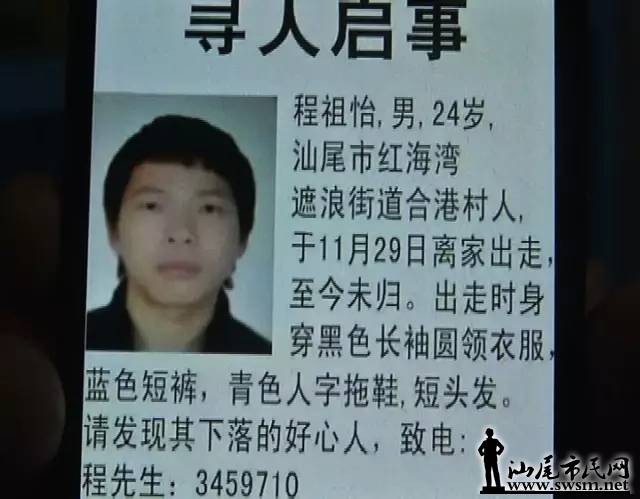 寻人启事
程祖怡,男,24岁,
汕尾市红海湾
遮浪街道合港村人,
于11月29日离家出走,
至今未归。出走时身
穿黑色长袖圆领衣服,
蓝色短裤，青色人字拖鞋,短头发。
请发现其下落的好心人，致电:
程先生：3459710
汕尾市民网
www.swsm.net